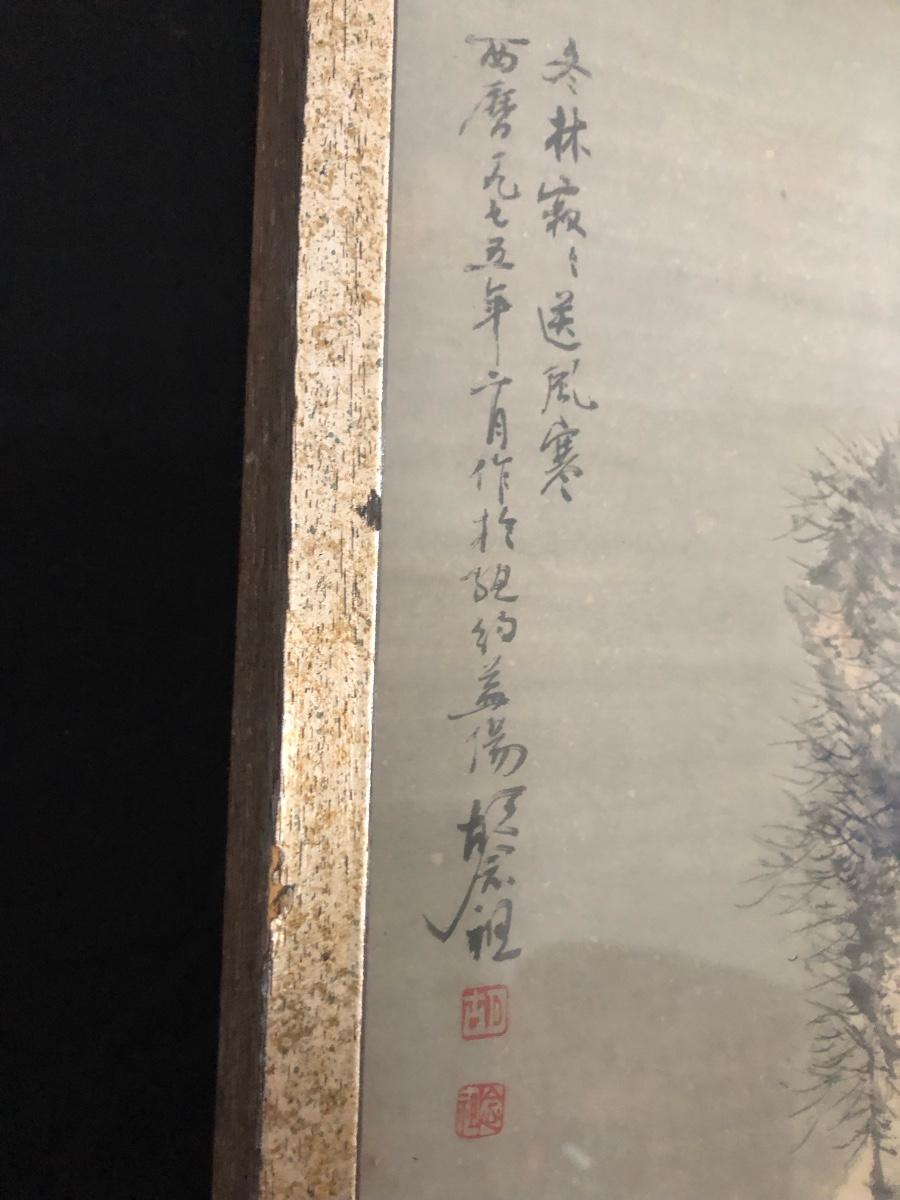 冬林寂々送風寒
西曆一九七五年二月作於紐約益陽胡念祖
胡
念祖